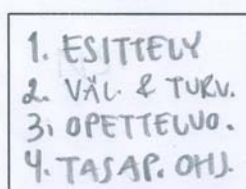 1. ESITTELY
2. VÄL. & TURV.
3. OPETTELUO.
4. TASAP. OHJ.